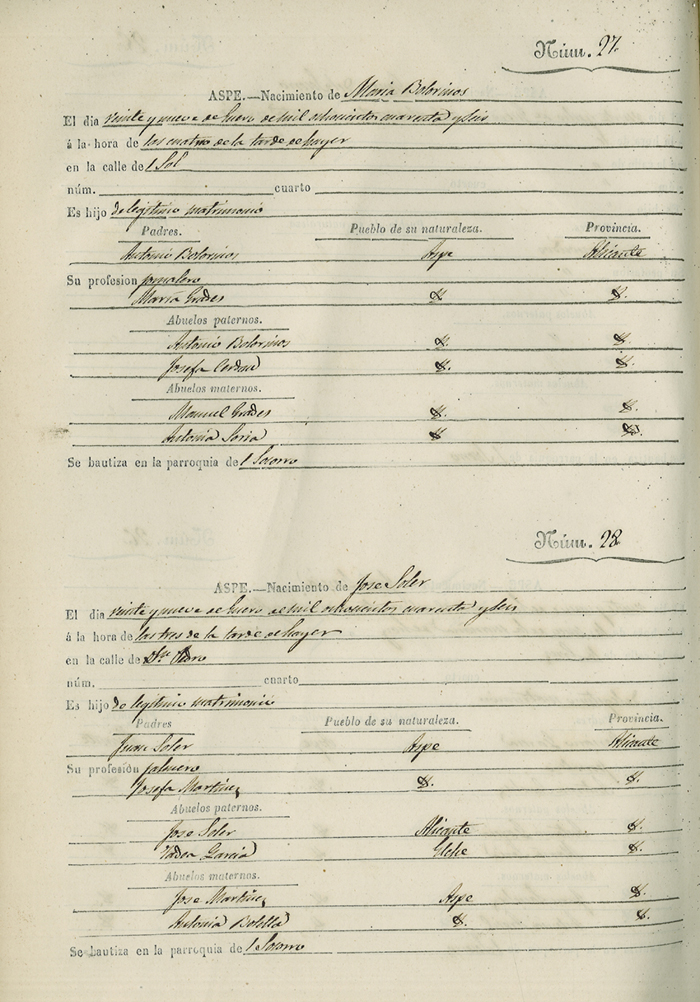 Núm. 27.
ASPE.—Nacimiento de Maria Bolorinos
El dia veinte y nueve de Enero de mil ochocientos cuarenta y seis
á la hora de las cuatro de la tarde de hayer
en la calle de l Sol
núm. cuarto
Es hijo de legitimo matrimonio
Padres. Pueblo de su naturaleza. Provincia.
Antonio Bolorinos Aspe Alicante
Su profesion jornalero
Maria Grades
Abuelos paternos.
Antonio Bolorinos
Josefa Cerdan
Abuelos maternos.
Manuel Grades
Antonia Soria
Se bautiza en la parroquia de l Socorro
Núm. 28
ASPE.—Nacimiento de Jose Soler
El dia veinte y nueve de Enero de mil ochocientos cuarenta y seis
á la hora de las tres de la tarde de hayer
en la calle de
núm. cuarto
Es hijo de legitimo matrimonio
Padres Pueblo de su naturaleza. Provincia.
Juan Soler Aspe Alicante
Su profesion
Josefa Martinez
Abuelos paternos.
Jose Soler Alicante
Garcia Elche
Abuelos maternos.
Jose Martinez Aspe
Antonia Botella
Se bautiza en la parroquia de l Socorro